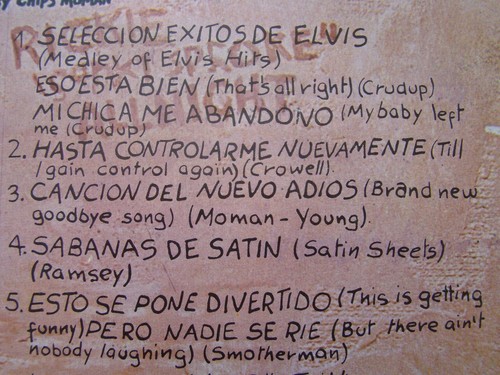 BY CHIPS MOMAN
1. SELECCION EXITOS DE ELVIS
(Medley of Elvis Hits)
ESO ESTA BIEN (That's all right) (Crudup)
MI CHICA ME ABANDONO (My baby left
me (Crudup)
2. HASTA CONTROLARME NUEVAMENTE (Till
I gain control again) (Crowell).
3. CANCION DEL NUEVO ADIOS (Brand new
goodbye song) (Moman - Young).
4. SABANAS DE SATIN (Satin Sheets)
(Ramsey)
5. ESTO SE PONE DIVERTIDO (This is getting
funny) PERO NADIE SE RIE (But there ain't
nobody laughing) (Smotherman)